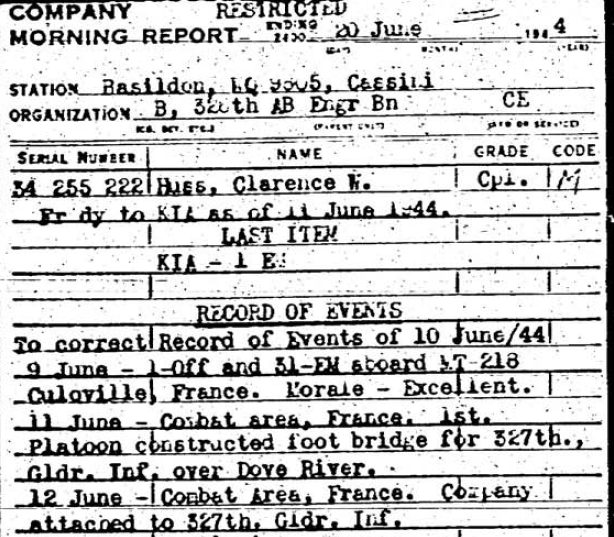 COMPANY RESTRICTED
MORNING REPORT ENDING 2400 20 June 1944
STATION Basildon, Cassini
ORGANIZATION B, 326th AB Engr Bn CE
SERIAL NUMBER NAME GRADE CODE
34 255 222 Huss, Clarence W. Cpl. M
Fr dy to KIA as of 11 June 1944.
LAST ITEM
KIA - 1 EM
RECORD OF EVENTS
To correct Record of Events of 10 June/44
9 June - 1-Off and 31-EM aboard
Culoville, France. Morale - Excellent.
11 June - Combat area, France. 1st.
Platoon constructed foot bridge for 327th.,
Gldr. Inf. over Dove River.
12 June - Combat Area, France. Company
attached to 327th. Gldr. Inf.